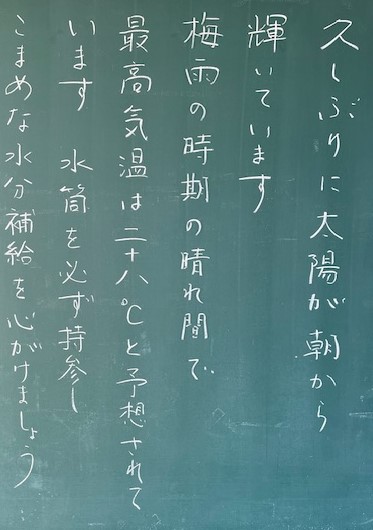 久しぶりに太陽が朝から
輝いています
梅雨の時期の晴れ間で
最高気温は二十八℃と予想されて
います 水筒を必ず持参し
こまめな水分補給を心がけましょう